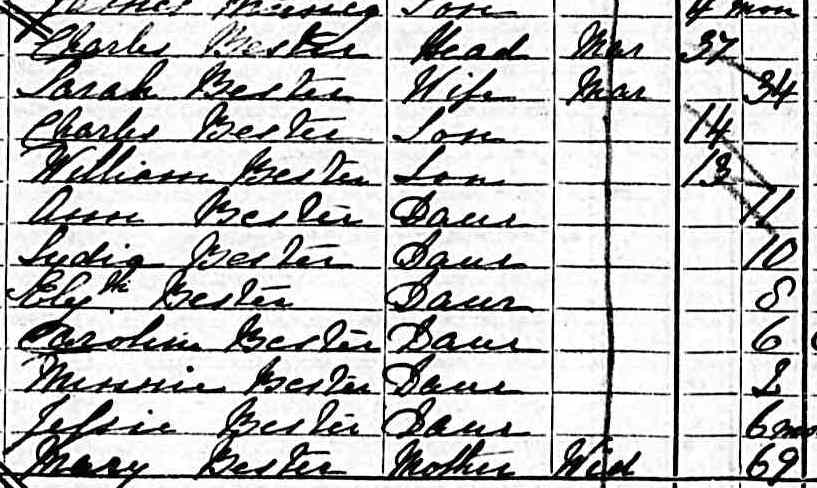 Son 4 mon
Charles Bester Head Mar 37
Sarah Bester Wife Mar 34
Charles Bester Son 14
William Bester Son 13
Ann Bester Daur 11
Lydia Bester Daur 10
Elizth Bester Daur 8
Caroline Bester Daur 6
Minnie Bester Daur 2
Jessie Bester Daur 6 mo
Mary Bester Mother Wid 69